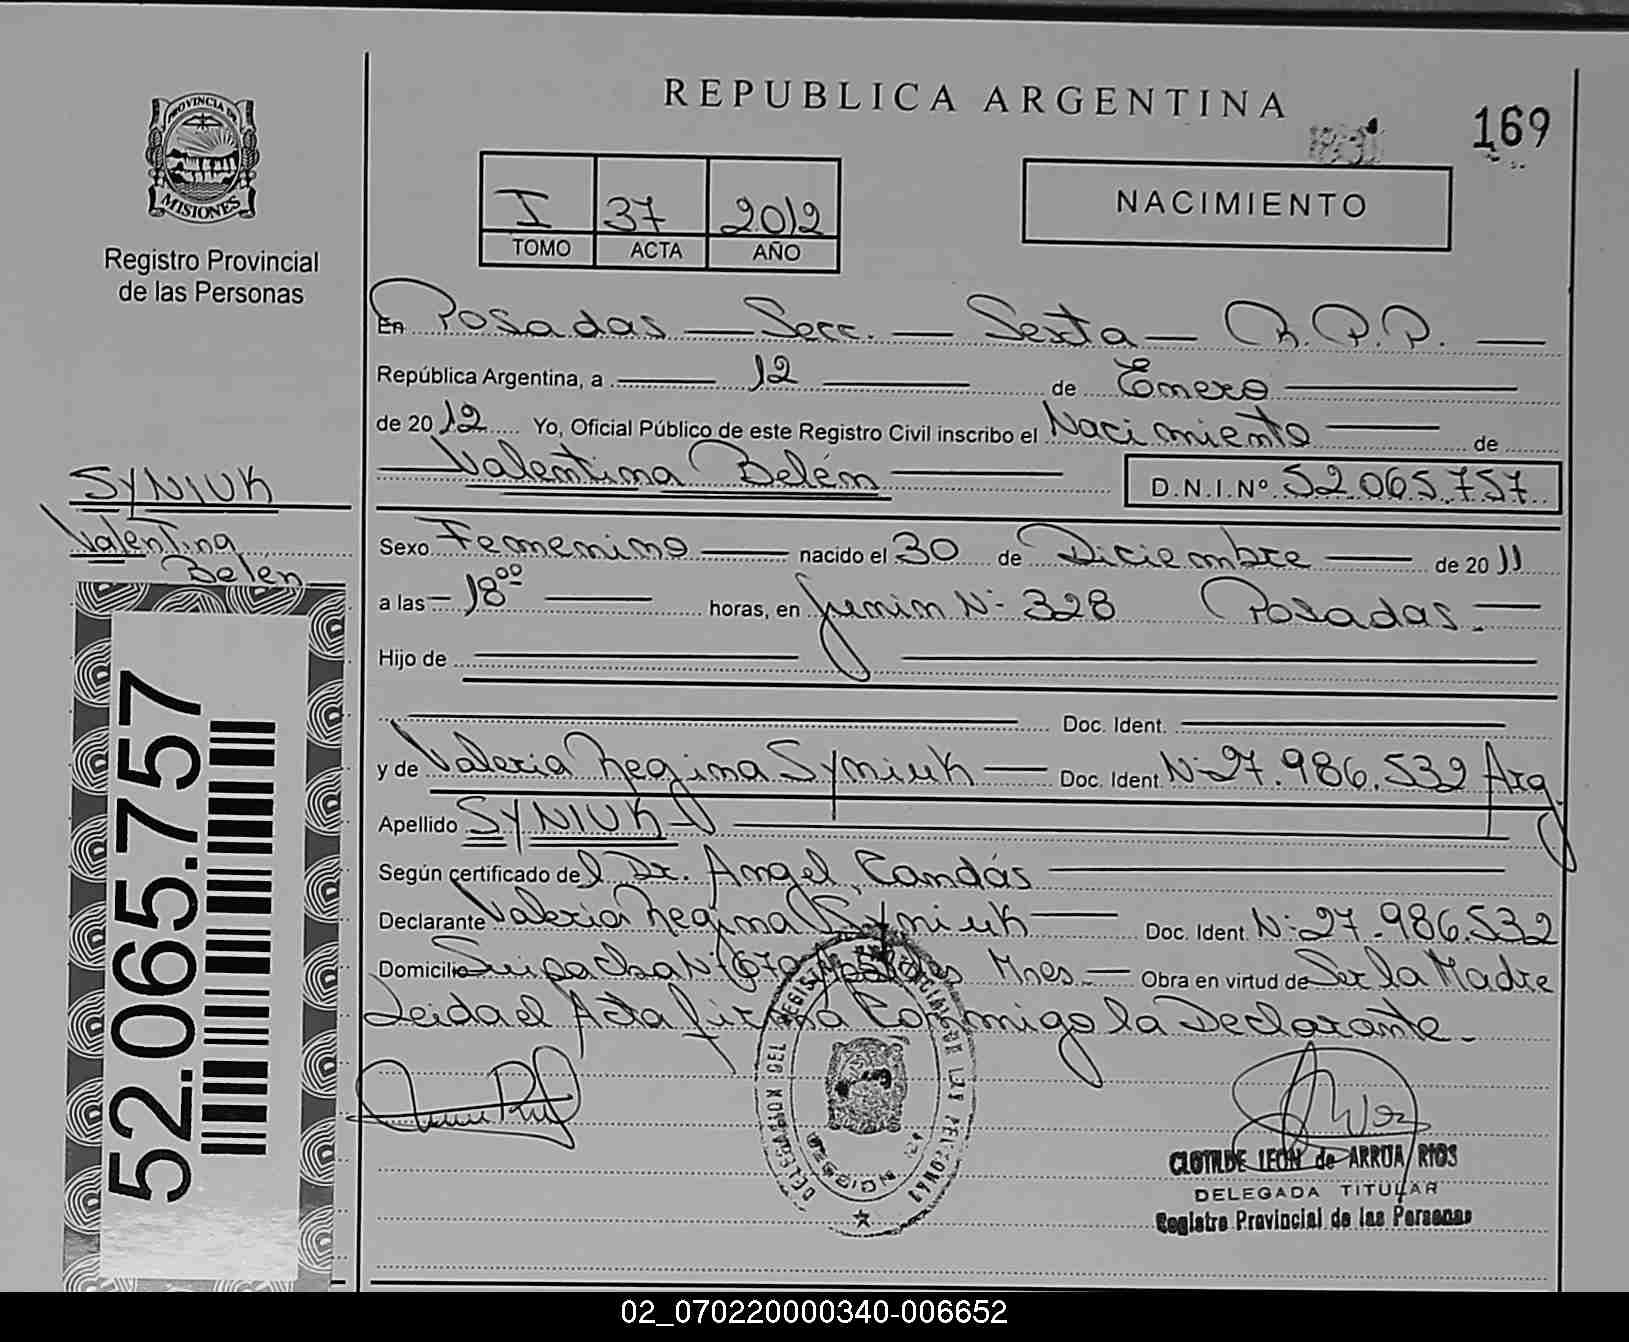 REPUBLICA ARGENTINA
169
PROVINCIA DE
MISIONES
Registro Provincial
de las Personas
I 37 2012
TOMO ACTA AÑO
NACIMIENTO
En Posadas — Secc. — Sexta — R.P.P. —
República Argentina, a — 12 — de Enero —
de 2012 Yo, Oficial Público de este Registro Civil inscribo el Nacimiento — de
— Valentina Belén — D.N.I.Nº 52.065.757
SYNIUK
Valentina
Belen —
Sexo Femenino — nacido el 30 de Diciembre — de 2011
a las — 18ºº — horas, en Junin Nº 328 Posadas. —
Hijo de —
— Doc. Ident. —
y de Valeria Regina Syniuk — Doc. Ident. Nº 27.986.532 Arg.
Apellido SYNIUK —
Según certificado del Dr. Angel Candás —
Declarante Valeria Regina Syniuk — Doc. Ident. Nº 27.986.532
Domicilio Suipacha Nº Posadas Mnes. — Obra en virtud de Ser la Madre
Leida el Acta firma Conmigo la Declarante.
52.065.757
DELEGACION DEL REGISTRO PROVINCIAL DE LAS PERSONAS
CLOTILDE LEON de ARRUA RIOS
DELEGADA TITULAR
Registro Provincial de las Personas
02_070220000340-006652